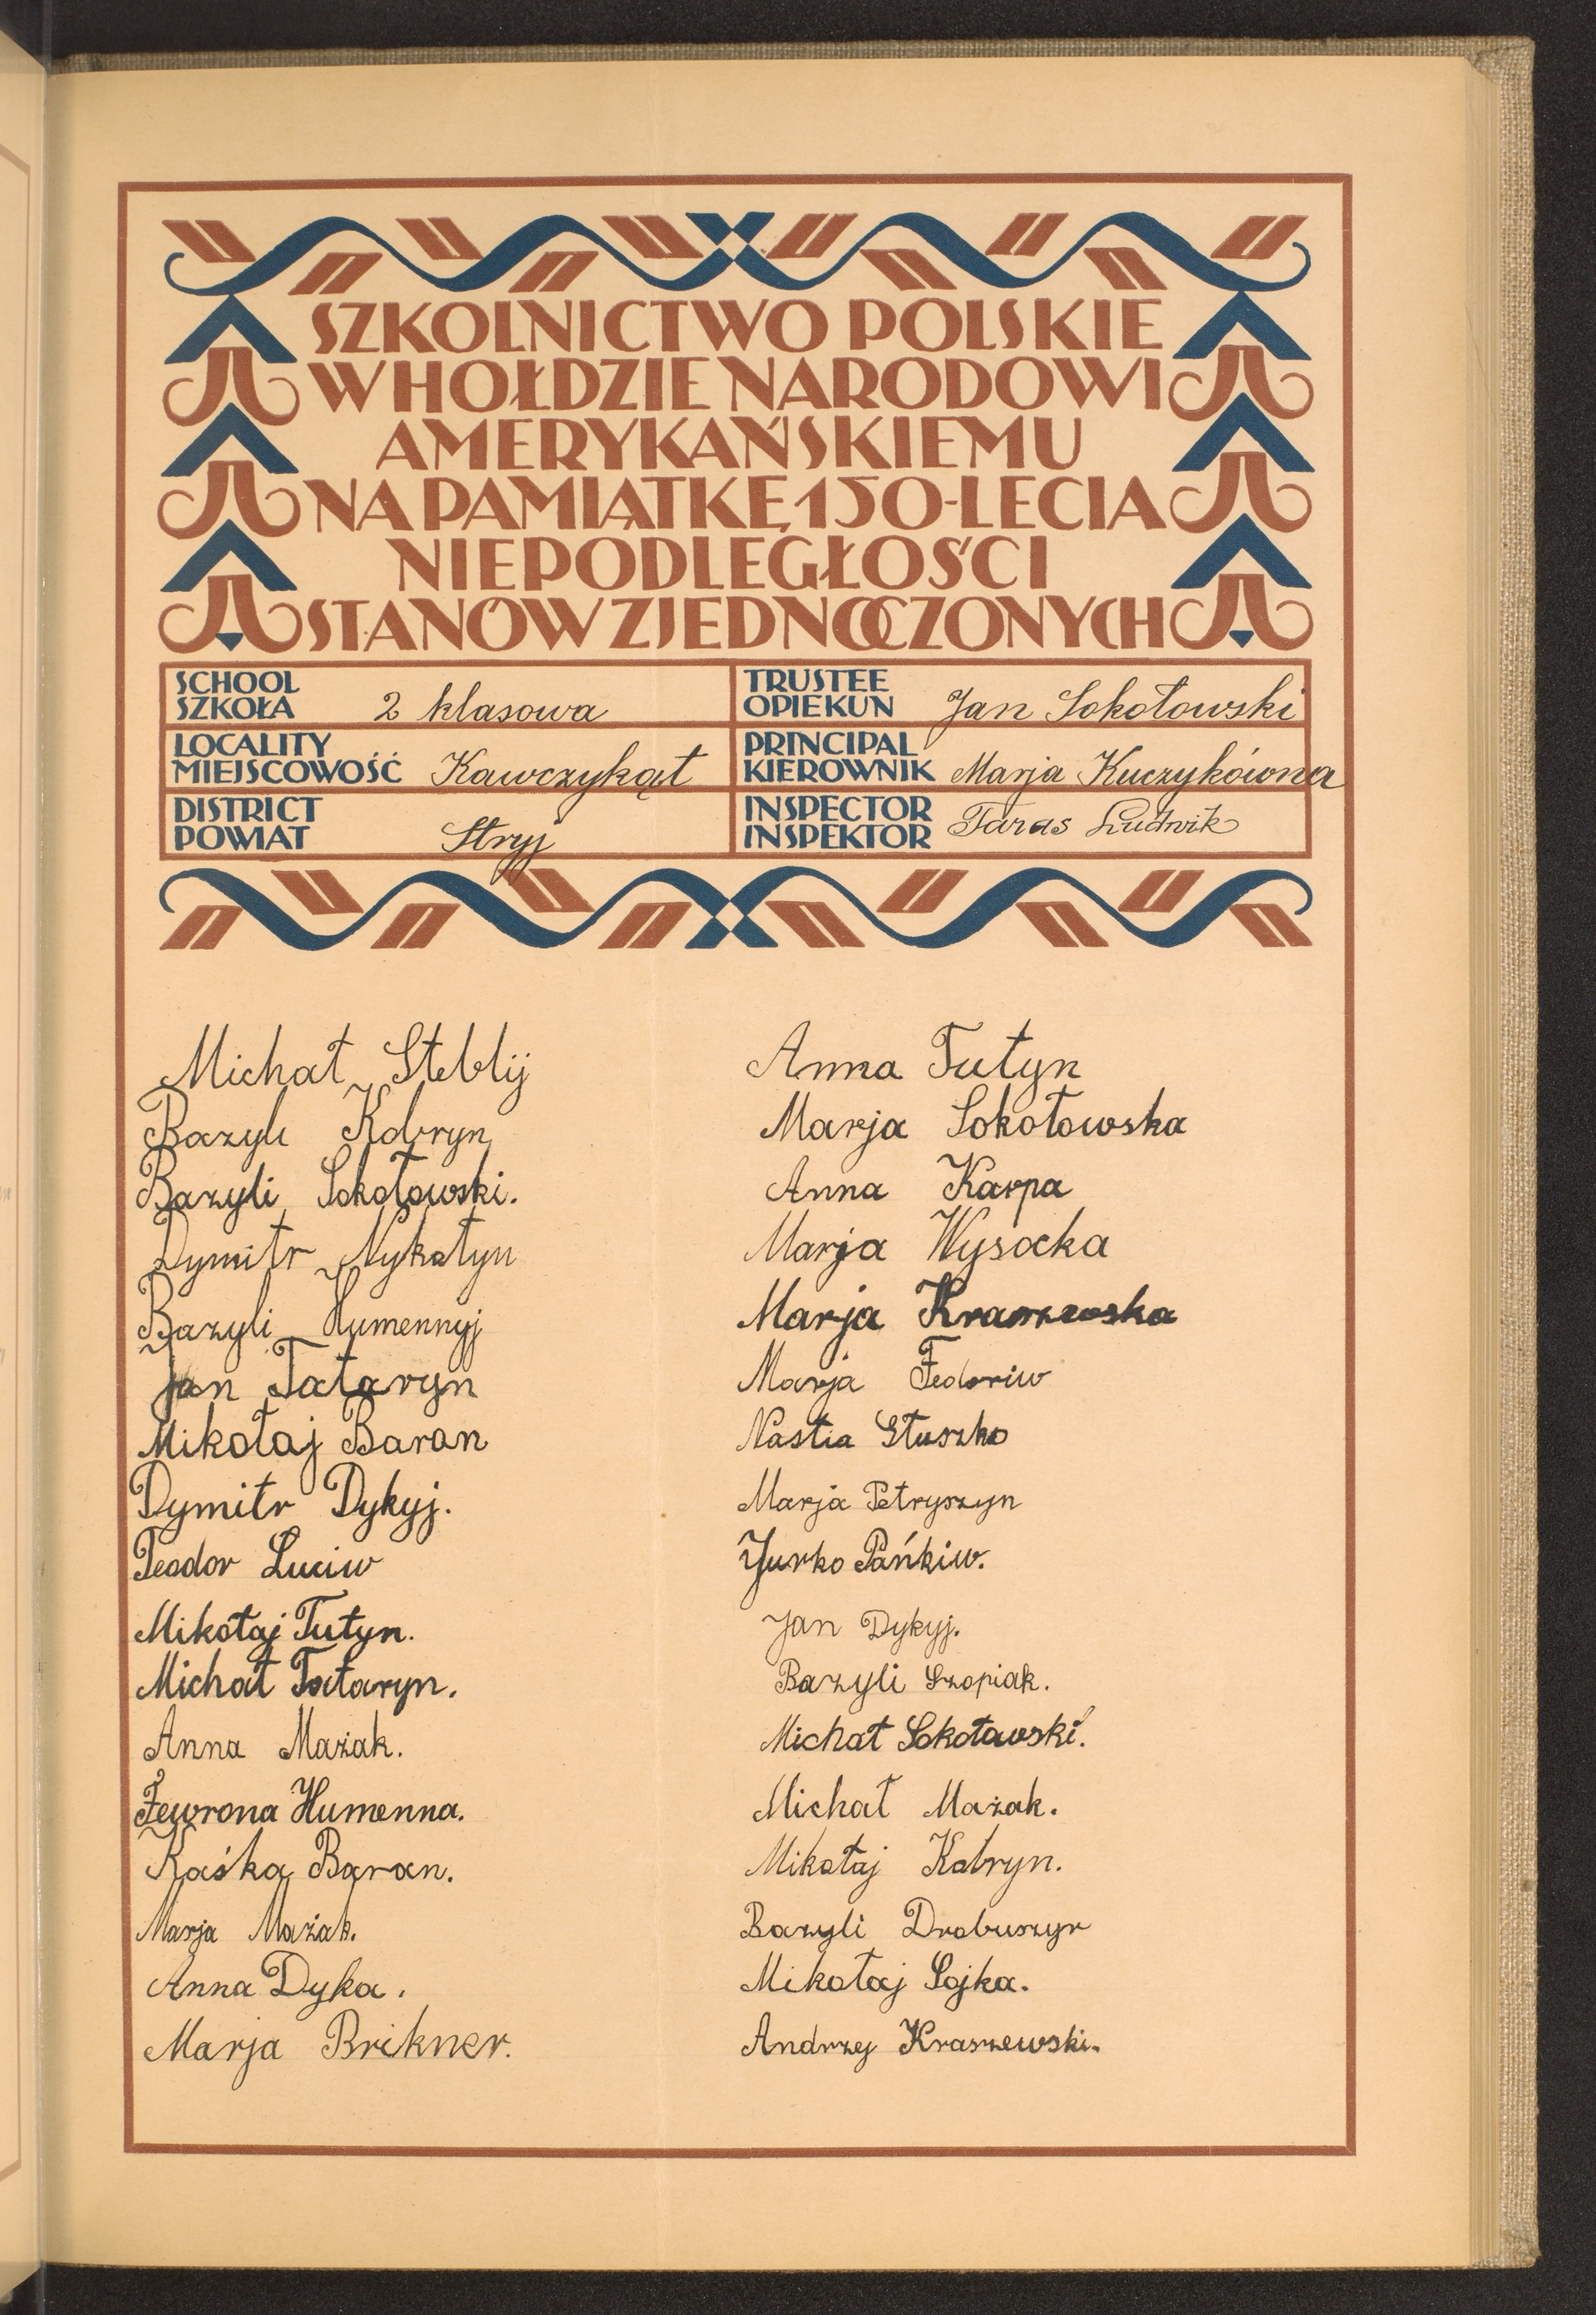 SZKOLNICTWO POLSKIE
W HOŁDZIE NARODOWI
AMERYKAŃSKIEMU
NA PAMIĄTKĘ 150-LECIA
NIEPODLEGŁOŚCI
STANÓW ZJEDNOCZONYCH
SCHOOL
SZKOŁA 2 klasowa
TRUSTEE
OPIEKUN Jan Sokołowski
LOCALITY
MIEJSCOWOŚĆ Kawczykąt
PRINCIPAL
KIEROWNIK Marja Kuczykówna
DISTRICT
POWIAT Stryj
INSPECTOR
INSPEKTOR Taras Ludwik
Michał Steblij
Bazyli Kobryn
Bazyli Sokołowski.
Dymitr Nykołyn
Bazyli Humennyj
Jan Tataryn
Mikołaj Baran
Dymitr Dykyj.
Teodor Luciw
Mikołaj Tutyn.
Michał Tataryn.
Anna Mażak.
Fewrona Humenna.
Kaśka Baran.
Marja Mażak.
Anna Dyka.
Marja Brikner.
Anna Tutyn
Marja Sokołowska
Anna Karpa
Marja Wysocka
Marja Kraszewska
Marja Fedoriw
Nastia Stuszko
Marja Petryszyn
Jurko Pańkiw.
Jan Dykyj.
Bazyli Szopiak.
Michał Sokołowski.
Michał Mażak.
Mikołaj Kobryn.
Bazyli Drobuszyr
Mikołaj Sojka.
Andrzej Kraszewski.